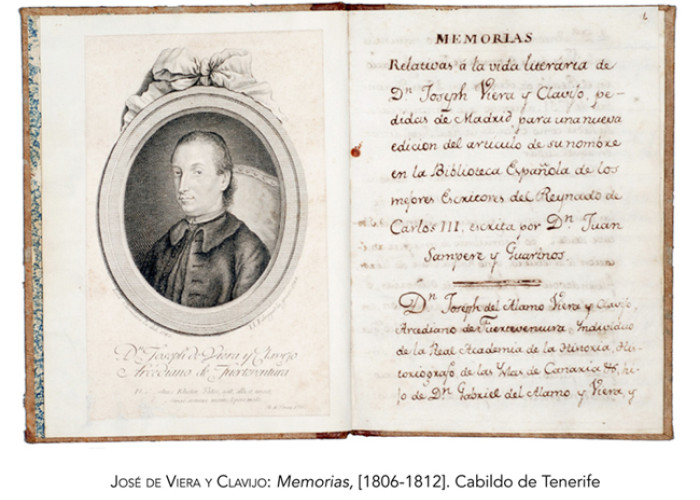 Dⁿ Joseph de Viera y Clavijo
Arcediano de Fuerteventura
MEMORIAS
Relativas a la vida literaria de
Dⁿ Joseph Viera y Clavijo, pe-
didas de Madrid para una nueva
edicion del articulo de su nombre
en la Biblioteca Española de los
mejores Escritores del Reynado de
Carlos III, escrita por Dⁿ Juan
Sempere y Guarinos.
Dⁿ Joseph del Alamo Viera y Clavijo,
Arcediano de Fuerteventura, Individuo
de la Real Academia de la Historia, His-
toriógrafo de las Yslas de Canaria &, hi-
jo de Dⁿ Gabriel del Alamo y Viera, y
JOSÉ DE VIERA Y CLAVIJO: Memorias, [1806-1812]. Cabildo de Tenerife